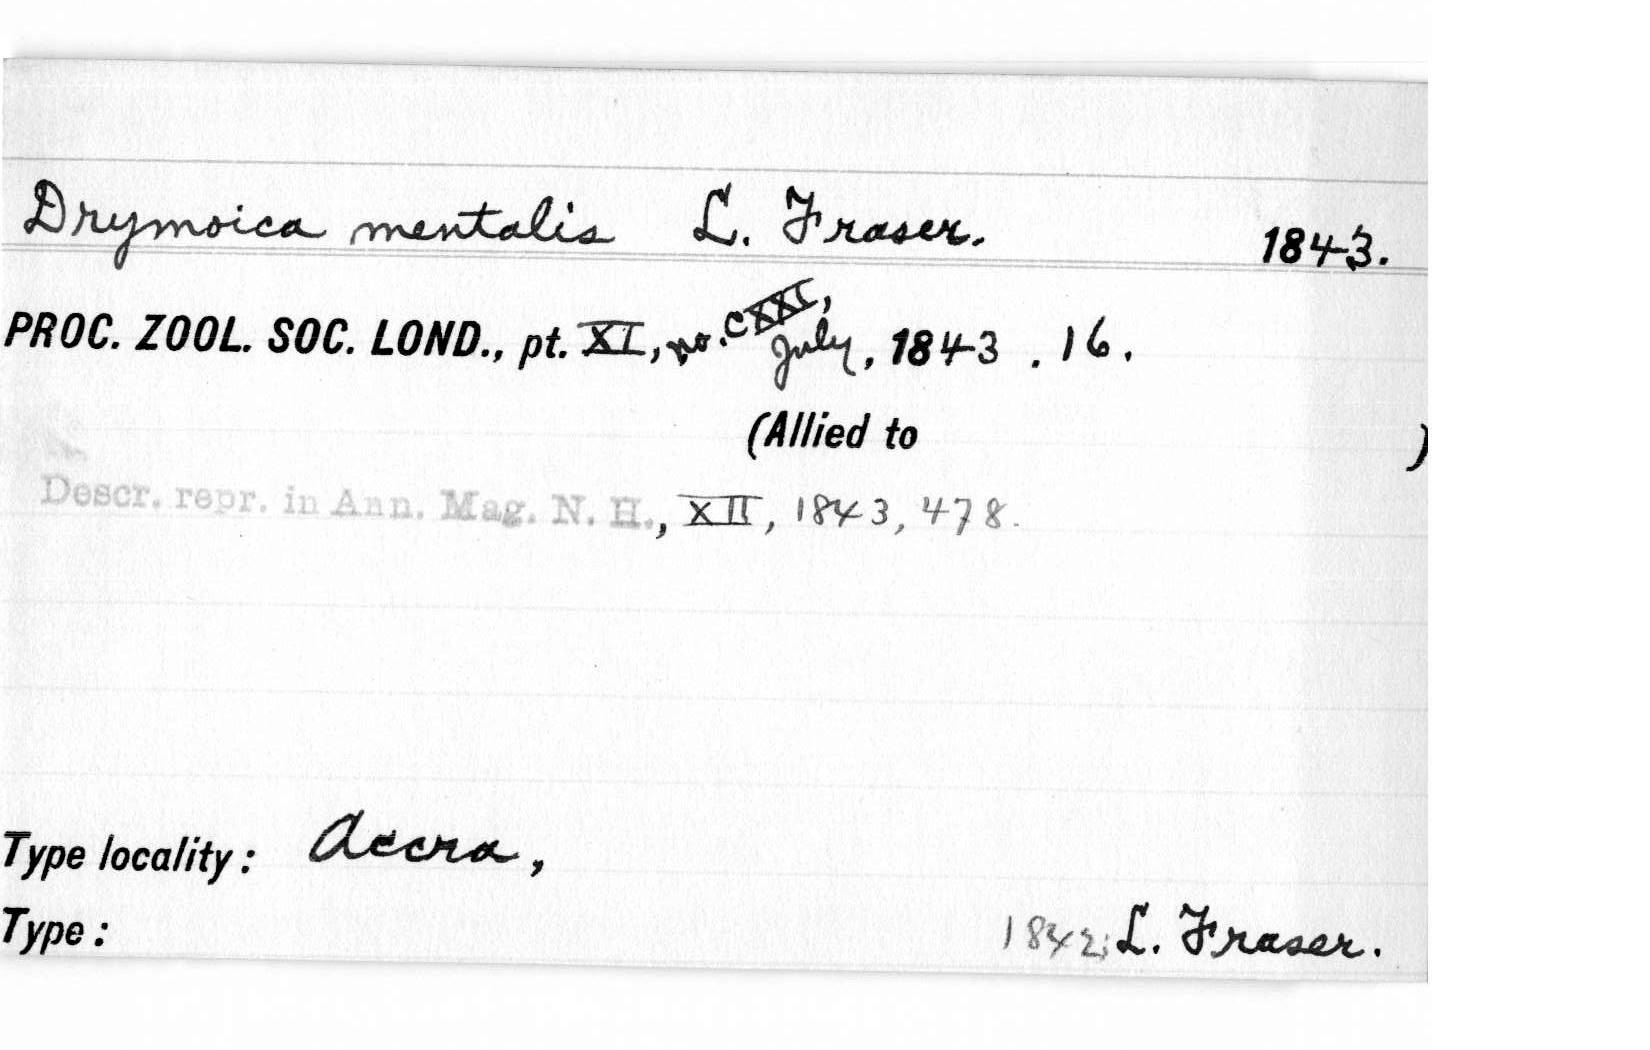 Drymoica mentalis L. Fraser. 1843.
PROC. ZOOL. SOC. LOND., pt. XI, no. CXXI, July, 1843 . 16.
(Allied to )
Descr. repr. in Ann. Mag. N. H., XII, 1843, 478.
Type locality: Accra,
Type: 1842; L. Fraser.